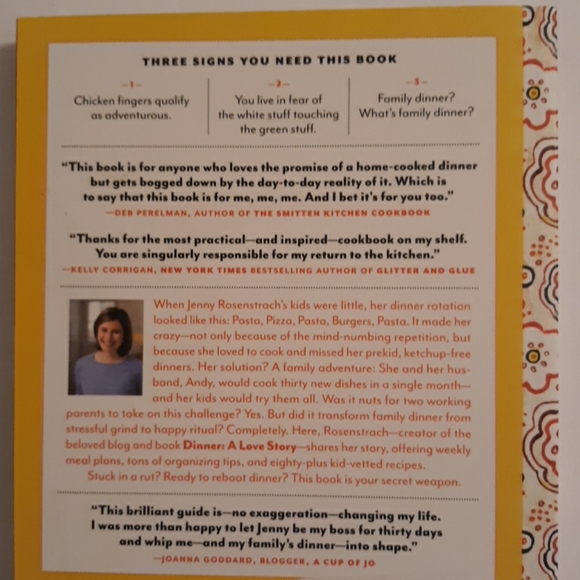 THREE SIGNS YOU NEED THIS BOOK
—1—
Chicken fingers qualify
as adventurous.
—2—
You live in fear of
the white stuff touching
the green stuff.
—3—
Family dinner?
What's family dinner?
"This book is for anyone who loves the promise of a home-cooked dinner
but gets bogged down by the day-to-day reality of it. Which is
to say that this book is for me, me, me. And I bet it's for you too."
—DEB PERELMAN, AUTHOR OF THE SMITTEN KITCHEN COOKBOOK
"Thanks for the most practical—and inspired—cookbook on my shelf.
You are singularly responsible for my return to the kitchen."
—KELLY CORRIGAN, NEW YORK TIMES BESTSELLING AUTHOR OF GLITTER AND GLUE
When Jenny Rosenstrach's kids were little, her dinner rotation
looked like this: Pasta, Pizza, Pasta, Burgers, Pasta. It made her
crazy—not only because of the mind-numbing repetition, but
because she loved to cook and missed her prekid, ketchup-free
dinners. Her solution? A family adventure: She and her hus-
band, Andy, would cook thirty new dishes in a single month—
and her kids would try them all. Was it nuts for two working
parents to take on this challenge? Yes. But did it transform family dinner from
stressful grind to happy ritual? Completely. Here, Rosenstrach—creator of the
beloved blog and book Dinner: A Love Story—shares her story, offering weekly
meal plans, tons of organizing tips, and eighty-plus kid-vetted recipes.
Stuck in a rut? Ready to reboot dinner? This book is your secret weapon.
"This brilliant guide is—no exaggeration—changing my life.
I was more than happy to let Jenny be my boss for thirty days
and whip me—and my family's dinner—into shape."
—JOANNA GODDARD, BLOGGER, A CUP OF JO